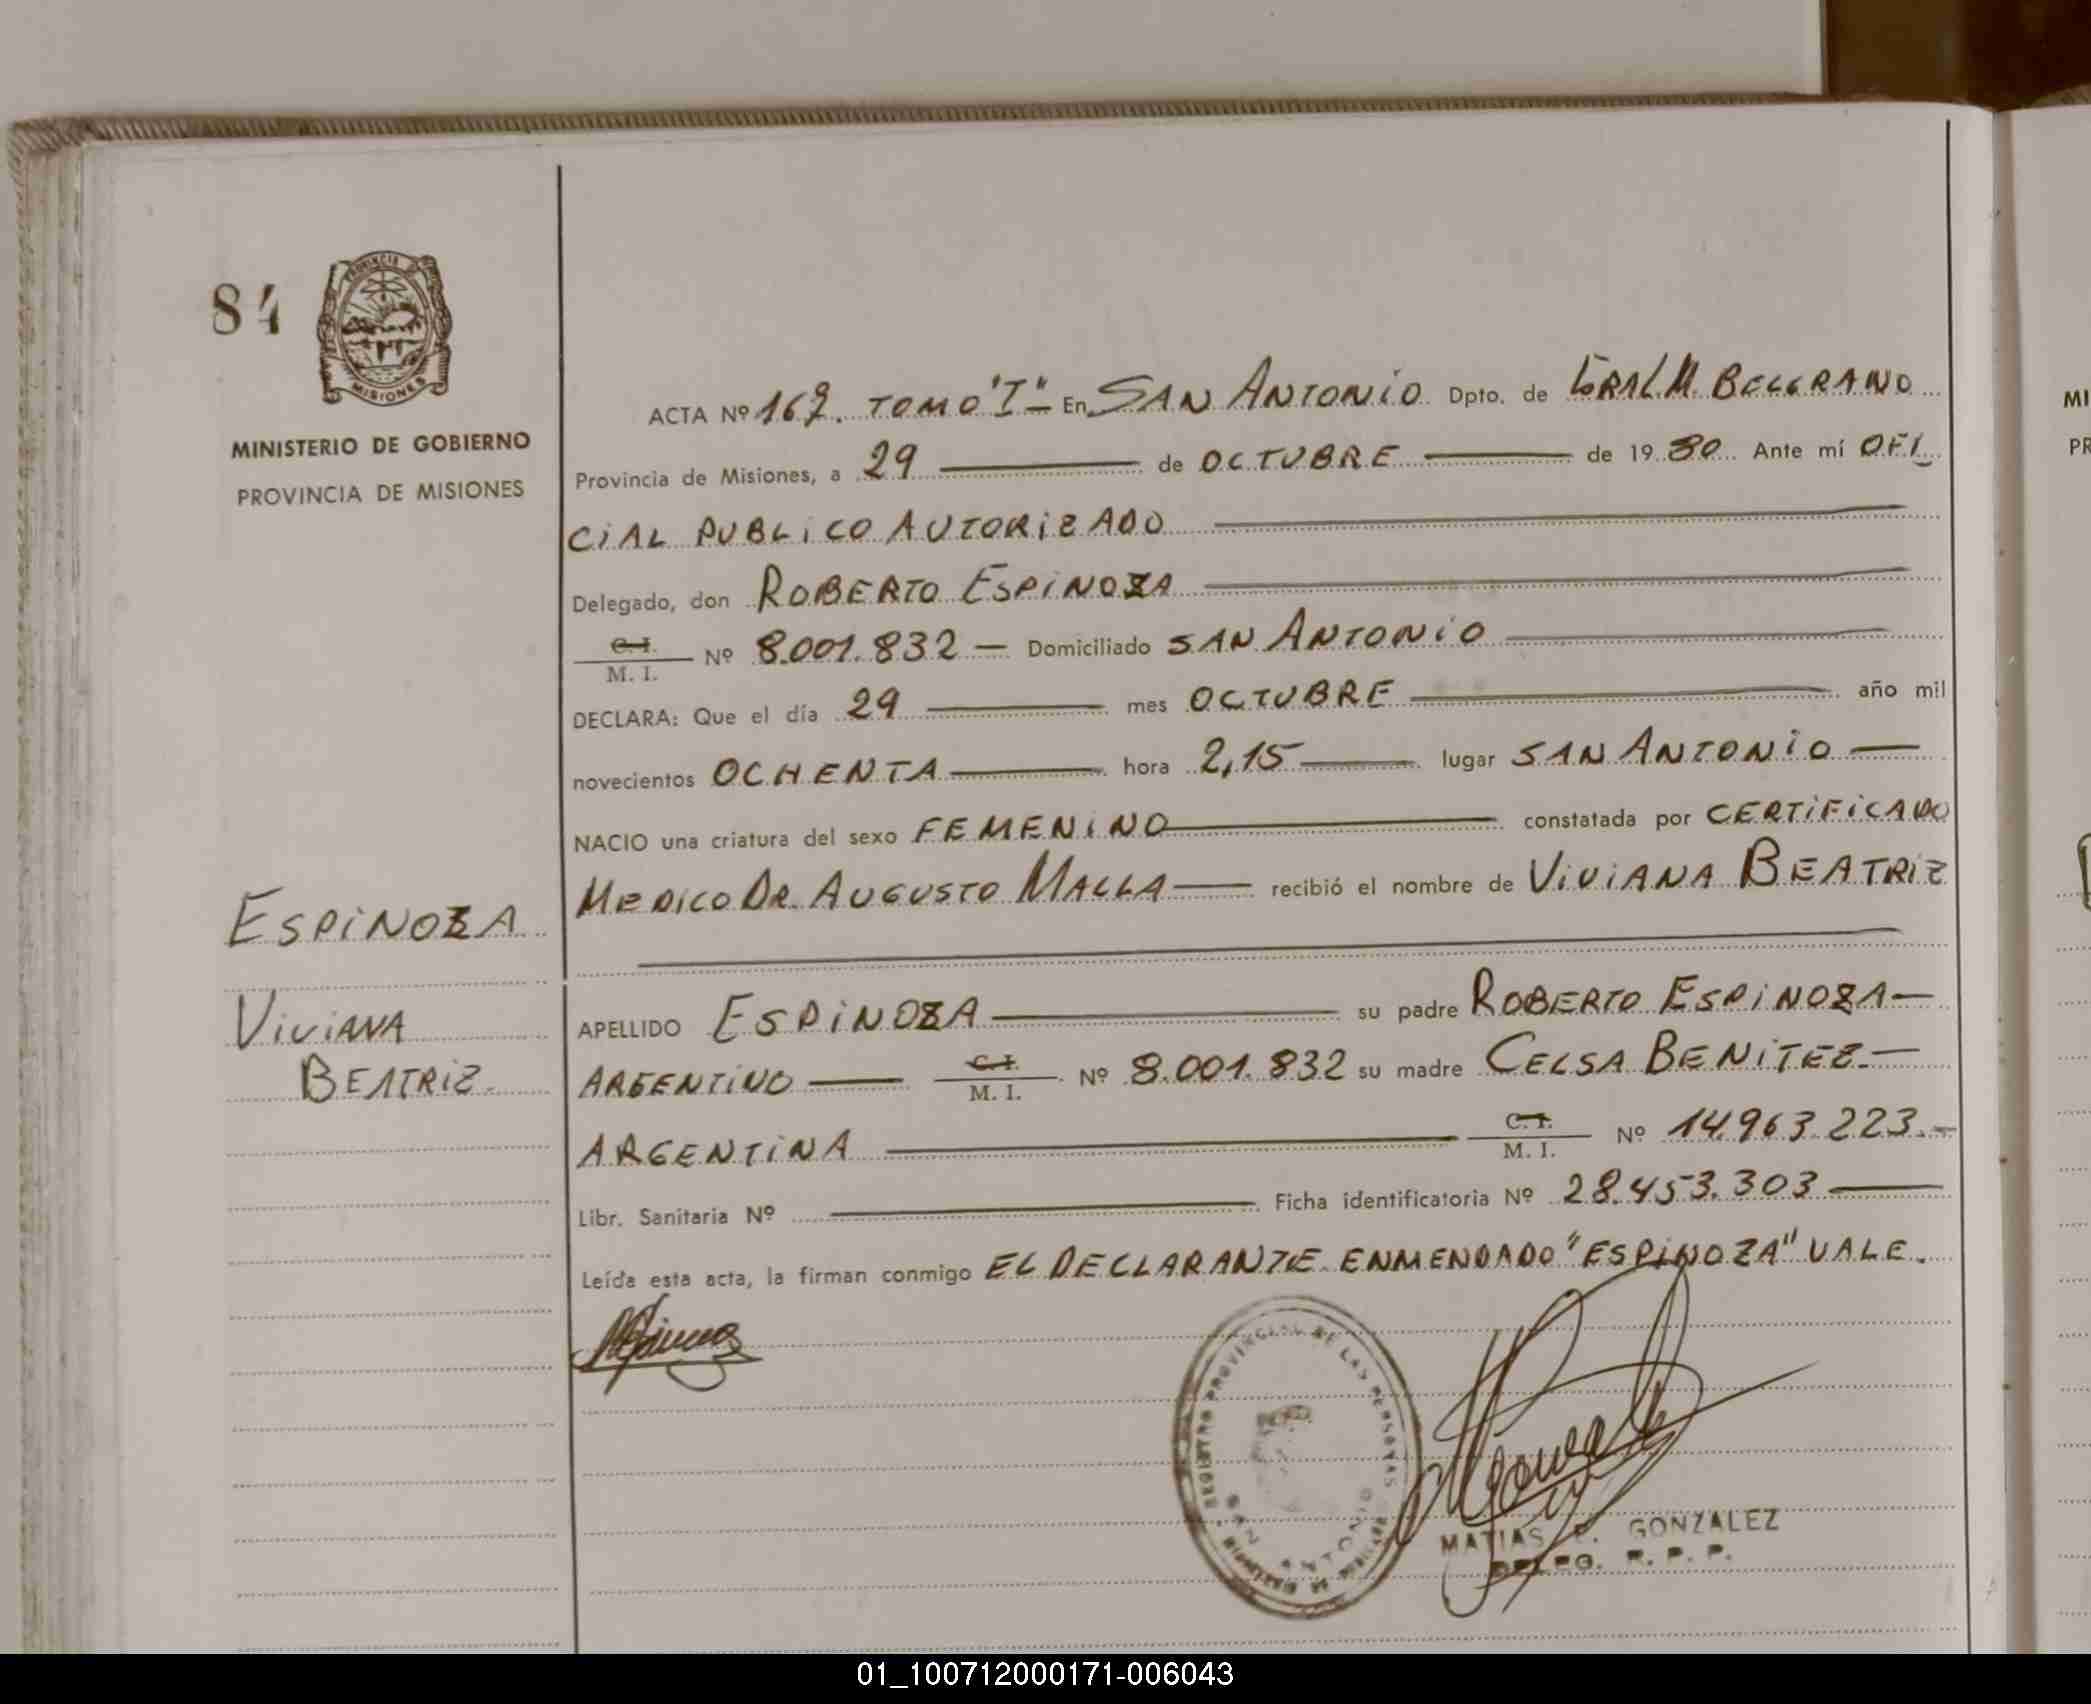 84
PROVINCIA DE
MISIONES
MINISTERIO DE GOBIERNO
PROVINCIA DE MISIONES
ESPINOZA
VIVIANA
BEATRIZ
ACTA Nº 167. TOMO "I" - En SAN ANTONIO Dpto. de GRAL M. BELGRANO
Provincia de Misiones, a 29 de OCTUBRE de 1980 Ante mí OFI
CIAL PUBLICO AUTORIZADO
Delegado, don ROBERTO ESPINOZA
C. I. M. I. Nº 8.001.832 — Domiciliado SAN ANTONIO
DECLARA: Que el día 29 mes OCTUBRE año mil
novecientos OCHENTA hora 2,15 lugar SAN ANTONIO
NACIO una criatura del sexo FEMENINO constatada por CERTIFICADO
MEDICO DR. AUGUSTO MALLA recibió el nombre de VIVIANA BEATRIZ
APELLIDO ESPINOZA su padre ROBERTO ESPINOZA
ARGENTINO C. I. M. I. Nº 8.001.832 su madre CELSA BENITEZ.
ARGENTINA C. I. M. I. Nº 14.963.223.-
Libr. Sanitaria Nº Ficha identificatoria Nº 28.453.303
Leída esta acta, la firman conmigo EL DECLARANTE ENMENDADO "ESPINOZA" VALE.
REGISTRO PROVINCIAL DE LAS PERSONAS
SAN ANTONIO
MATIAS E. GONZALEZ
DELEG. R. P. P.
MI
PR
01_100712000171-006043